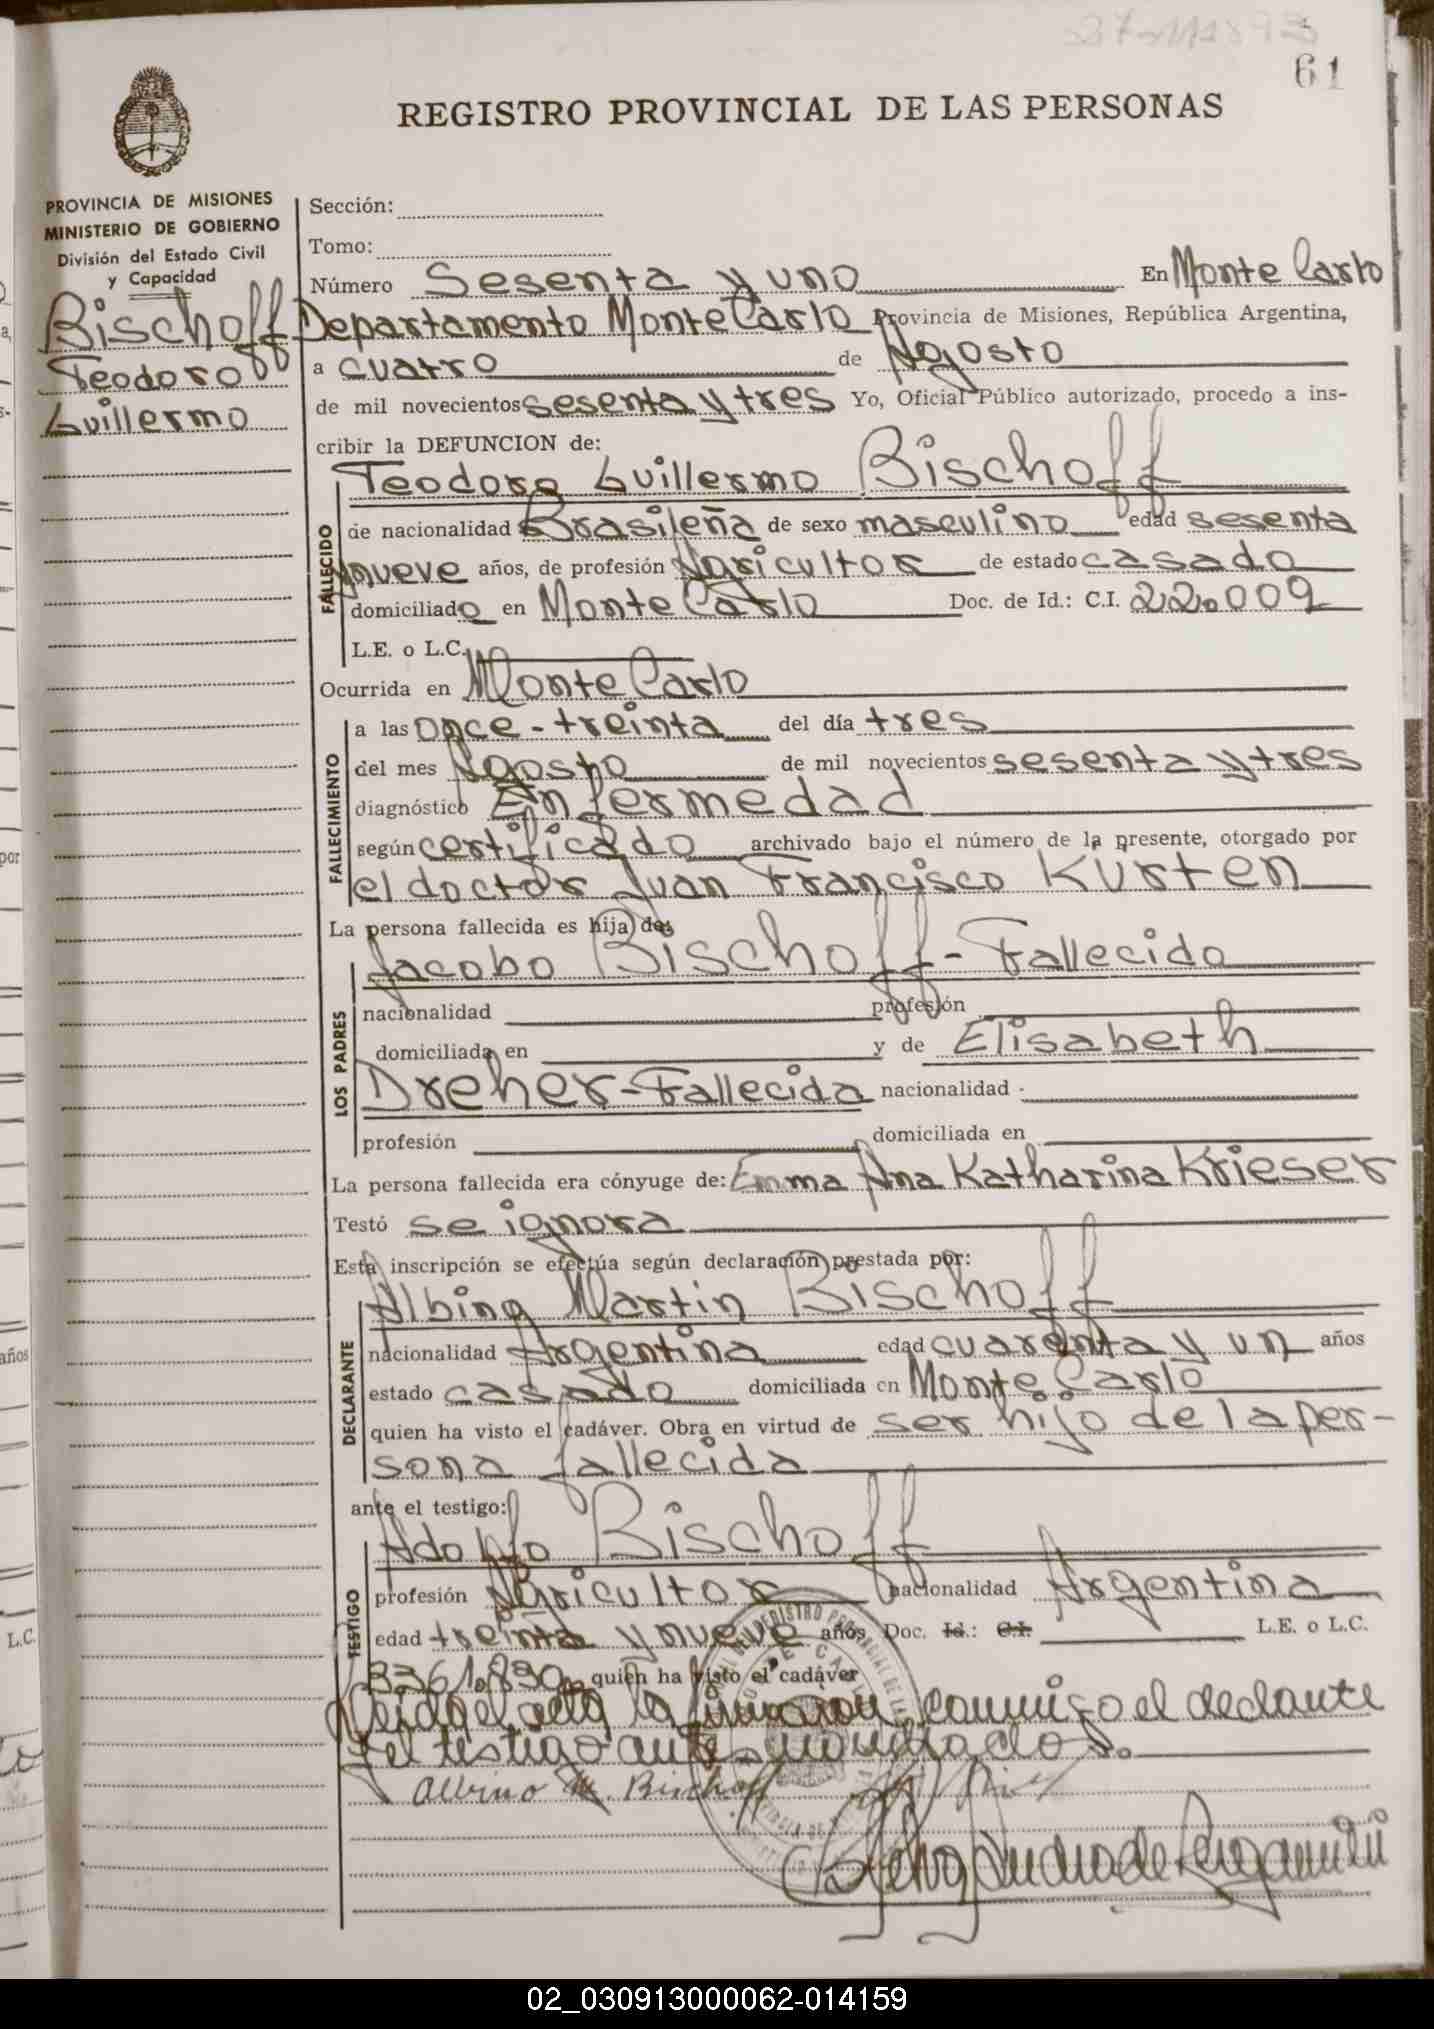 27-11-1893
61
REGISTRO PROVINCIAL DE LAS PERSONAS
PROVINCIA DE MISIONES
MINISTERIO DE GOBIERNO
División del Estado Civil
y Capacidad
Bischoff
Teodoro
Guillermo
Sección:
Tomo:
Número Sesenta y uno En Monte Carlo
Departamento Monte Carlo Provincia de Misiones, República Argentina,
a cuatro de Agosto
de mil novecientos sesenta y tres Yo, Oficial Público autorizado, procedo a ins-
cribir la DEFUNCION de:
Teodoro Guillermo Bischoff
FALLECIDO
de nacionalidad Brasileña de sexo masculino edad sesenta
y nueve años, de profesión Agricultor de estado casado
domiciliado en Monte Carlo Doc. de Id.: C.I. 22.009
L.E. o L.C.
Ocurrida en Monte Carlo
FALLECIMIENTO
a las once-treinta del día tres
del mes Agosto de mil novecientos sesenta y tres
diagnóstico Enfermedad
según certificado archivado bajo el número de la presente, otorgado por
el doctor Juan Francisco Kurten
La persona fallecida es hija de:
LOS PADRES
Jacobo Bischoff - Fallecido
nacionalidad profesión
domiciliada en y de Elisabeth
Dreher - Fallecida nacionalidad
profesión domiciliada en
La persona fallecida era cónyuge de: Emma Ana Katharina Krieser
Testó se ignora
Esta inscripción se efectúa según declaración prestada por:
DECLARANTE
Albino Martin Bischoff
nacionalidad Argentina edad cuarenta y un años
estado casado domiciliada en Monte Carlo
quien ha visto el cadáver. Obra en virtud de ser hijo de la per-
sona fallecida
ante el testigo:
TESTIGO
Adolfo Bischoff
profesión Agricultor nacionalidad Argentina
edad treinta y nueve años, Doc. Id.: C.I. L.E. o L.C.
3361.890 quien ha visto el cadáver
Leida el acta la firmaron conmigo el declante
y el testigo antes nombrados.
Albino M. Bischoff
02_030913000062-014159